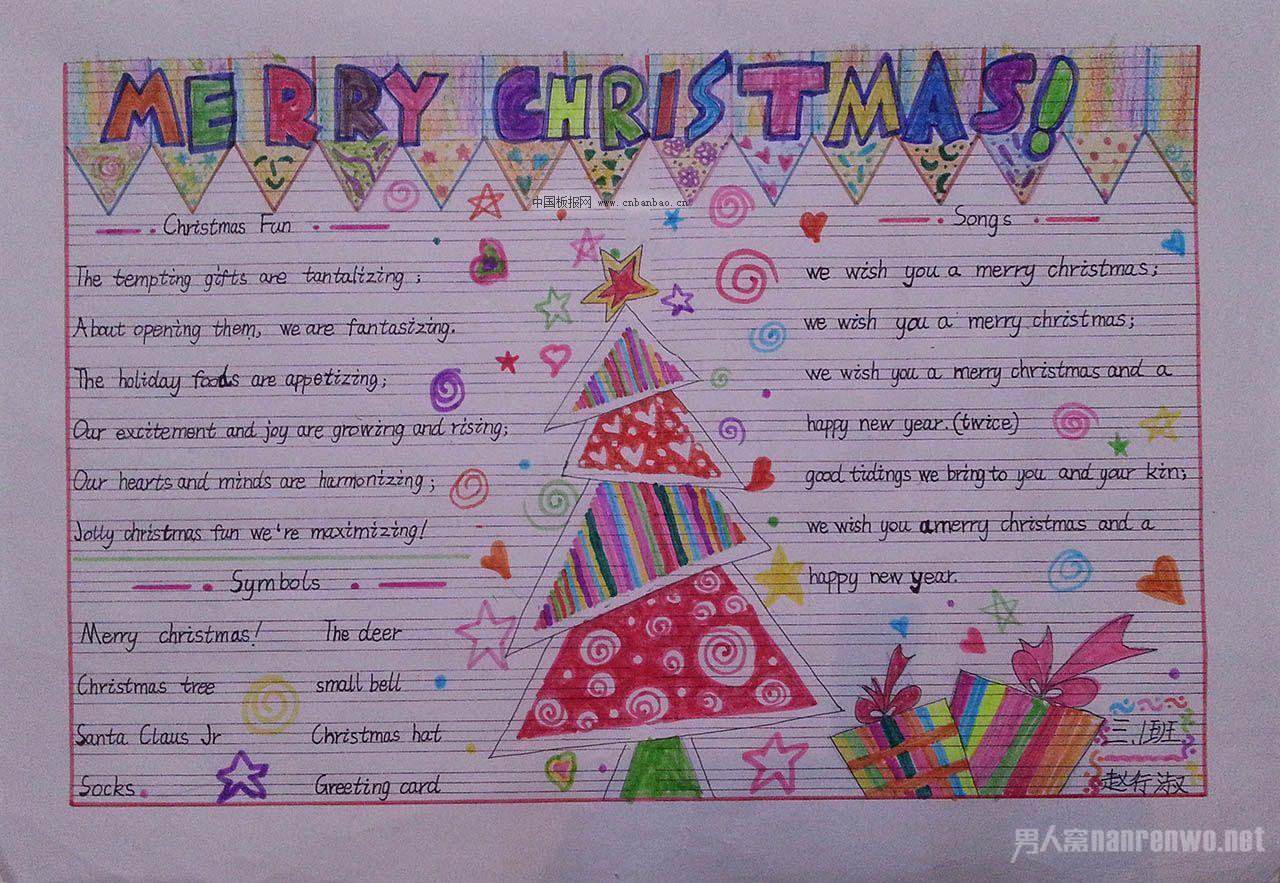 MERRY CHRISTMAS!
中国板报网 www.cnbanbao.cn
Christmas Fun
The tempting gifts are tantalizing;
About opening them, we are fantasizing.
The holiday foods are appetizing;
Our excitement and joy are growing and rising;
Our hearts and minds are harmonizing;
Jolly christmas fun we're maximizing!
Symbols
Merry christmas! The deer
Christmas tree small bell
Santa Claus Jr Christmas hat
Socks Greeting card
Songs
we wish you a merry christmas;
we wish you a merry christmas;
we wish you a merry christmas and a
happy new year.(twice)
good tidings we bring to you and your kin;
we wish you a merry christmas and a
happy new year.
三.1班
赵行淑
男人窝nanrenwo.net